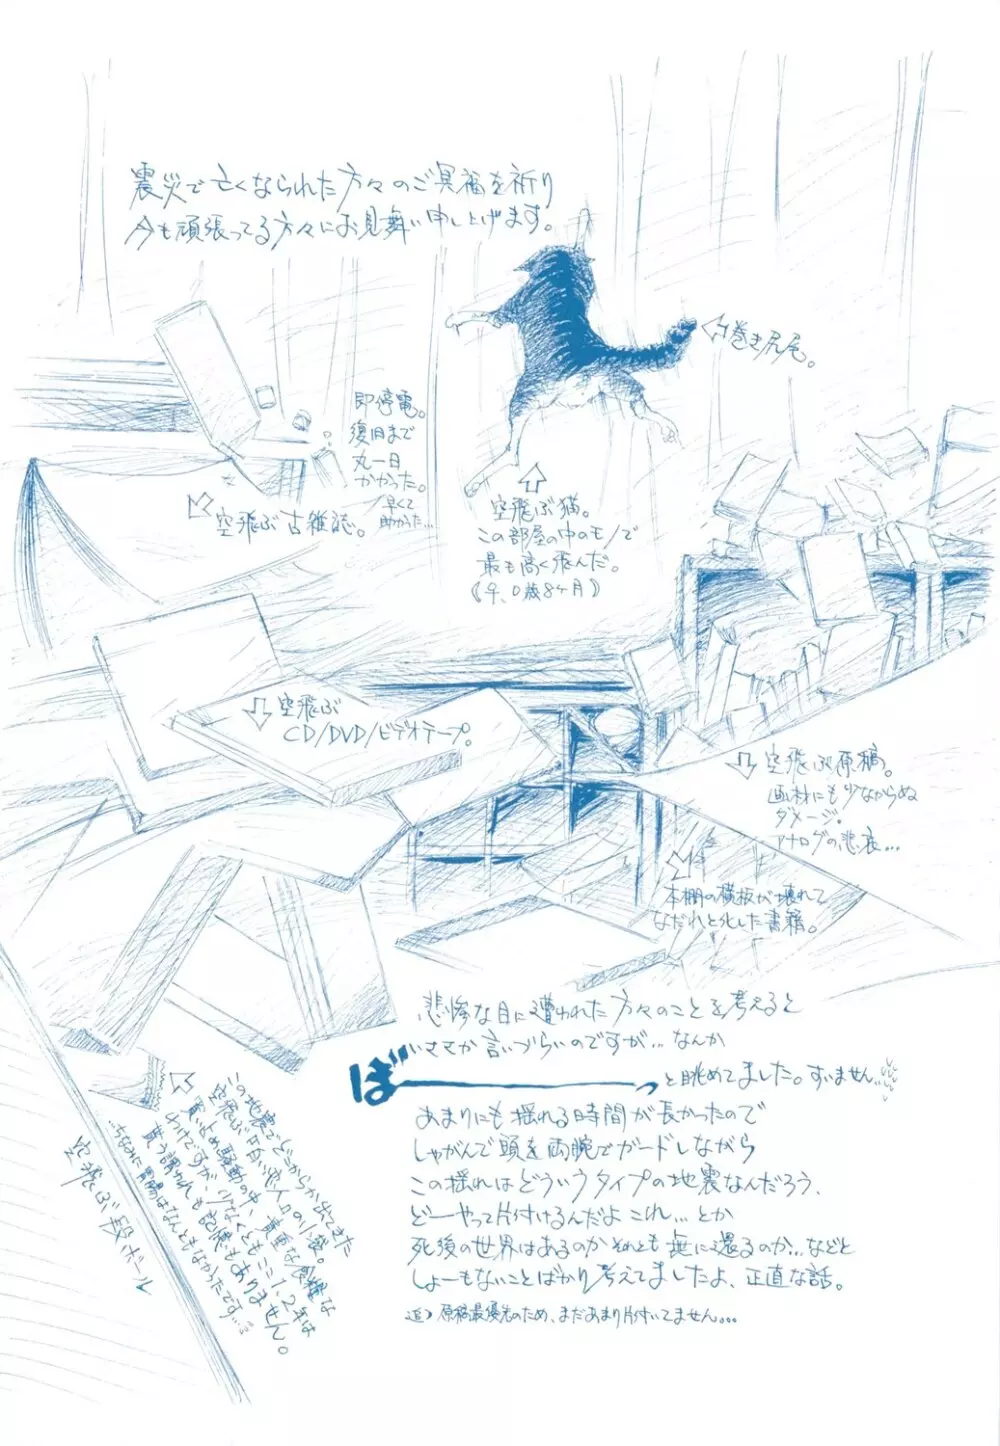 震災で亡くなられた方々のご冥福を祈り
今も頑張ってる方々にお見舞い申し上げます。
巻き尻尾。
即停電。
復旧まで
丸一日
かかった。
早くて
助かった…
空飛ぶ古雑誌。
空飛ぶ猫。
この部屋の中のモノで
最も高く飛んだ。
《♀、0歳8ヶ月》
空飛ぶ
CD/DVD/ビデオテープ。
空飛ぶ原稿。
画材にも少なからぬ
ダメージ。
アナログの悲哀…
本棚の横板が壊れて
なだれと化した書籍。
悲惨な目に遭われた方々のことを考えると
いささか言いづらいのですが…なんか
ぼーーーっと眺めてました。すいません…
あまりにも揺れる時間が長かったので
しゃがんで頭を両腕でガードしながら
この揺れはどういうタイプの地震なんだろう、
どーやって片付けるんだよこれ…とか
死後の世界はあるのかそれとも無に還るのか…などと
しょーもないことばかり考えてましたよ、正直な話。
追）原稿最優先のため、まだあまり片付いてません…
この地震でどこからか出てきた
空飛ぶ白い恋人の小袋。
買い占め騒動の中、貴重な食糧な
わけですが、少なくともここ1、2年は
貰う謂われも記憶もありません。
…ちなみに胃腸はなんともなかったです…
空飛ぶ段ボール